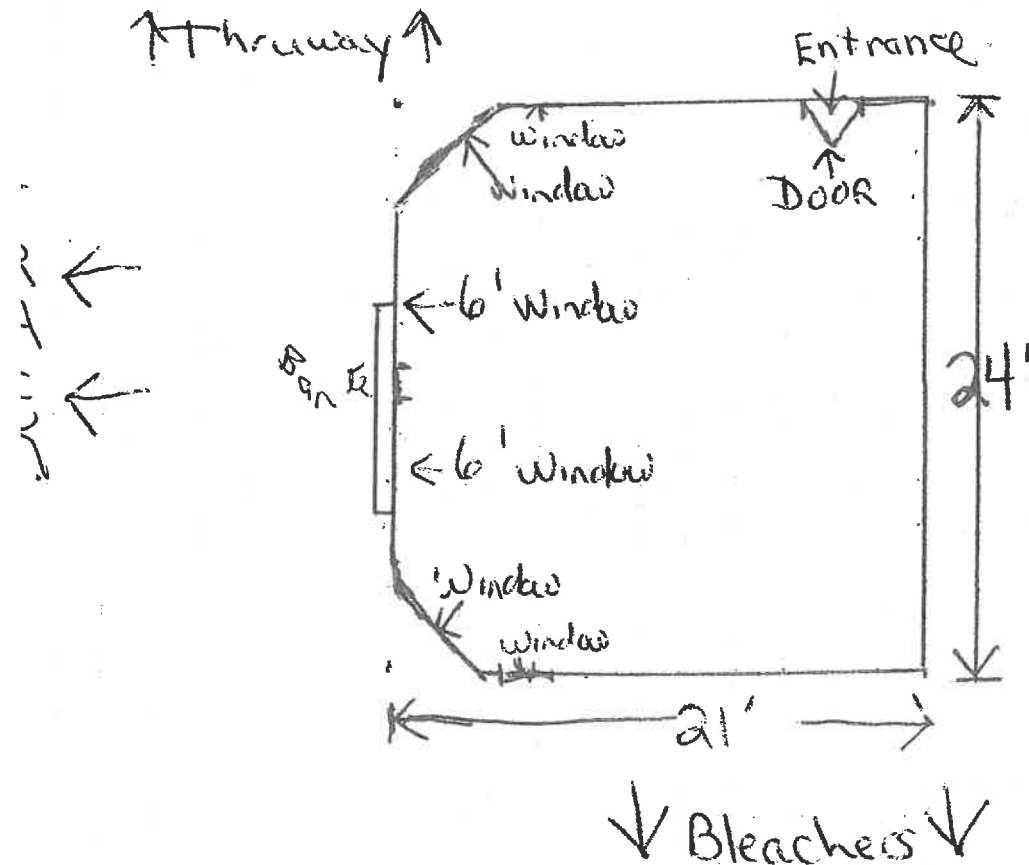 Thruway
Entrance
window
Window
DOOR
6' Window
6' Window
24'
Window
window
21'
Bleachers